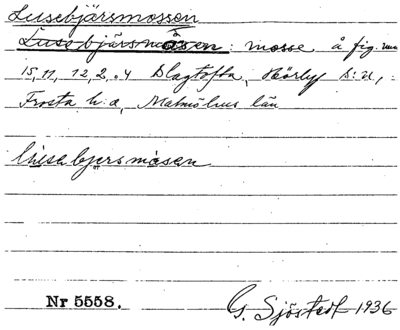 Lusebjärsmossen
Lusebjärsmåsen: mosse å fig.
15, 11, 12, 2, 04 Slagtofta, Hörby s:n,
Frosta h:d, Malmöhus län
lusabjersmåsen
Nr 5558.
G. Sjöstedt 1936